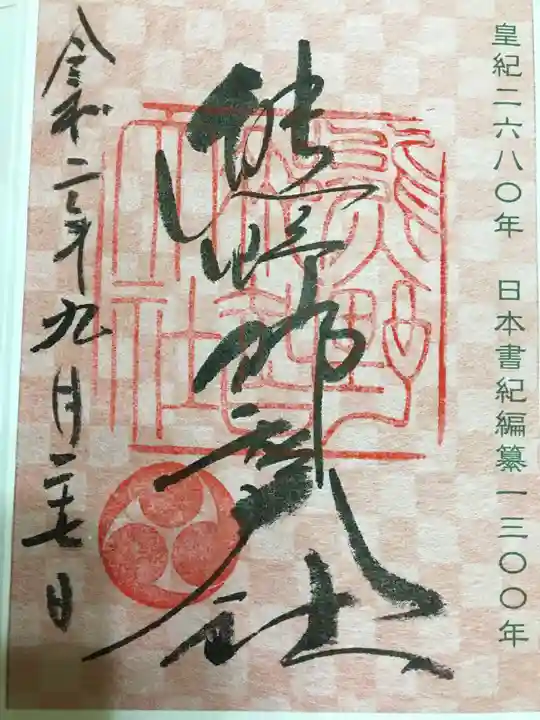 皇紀二六八〇年 日本書紀編纂一三〇〇年
熊野
大社
令和二年九月二七日